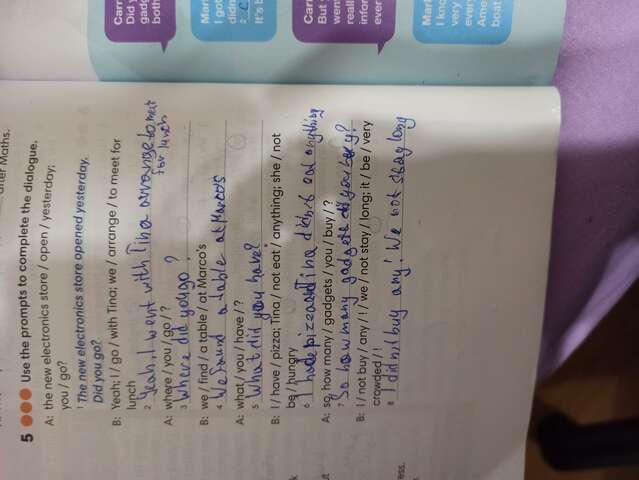 after Maths.
5 Use the prompts to complete the dialogue.
A: the new electronics store / open / yesterday;
you / go?
1 The new electronics store opened yesterday.
Did you go?
B: Yeah; I / go / with Tina; we / arrange / to meet for
lunch
2 Yeah, I went with Tina arrange to meet
for lunch
A: where / you / go / ?
3 Where did you go?
B: we / find / a table / at Marco's
4 We found a table at Marcos
A: what / you / have / ?
5 What did you have?
B: I / have / pizza; Tina / not eat / anything; she / not
be / hungry
6 I hade pizza and Tina didn't eat anything
A: so, how many / gadgets / you / buy / ?
7 So how many gadgets did you buy?
B: I / not buy / any / ! / we / not stay / long; it / be / very
crowded / !
8 I didn't buy any! We not stay long
Carr
Did y
gadg
both
Mar
I got
didn
2 C
It's b
Carr
But
went
reall
infor
ever
Mar
I kno
very
every
Ame
boat